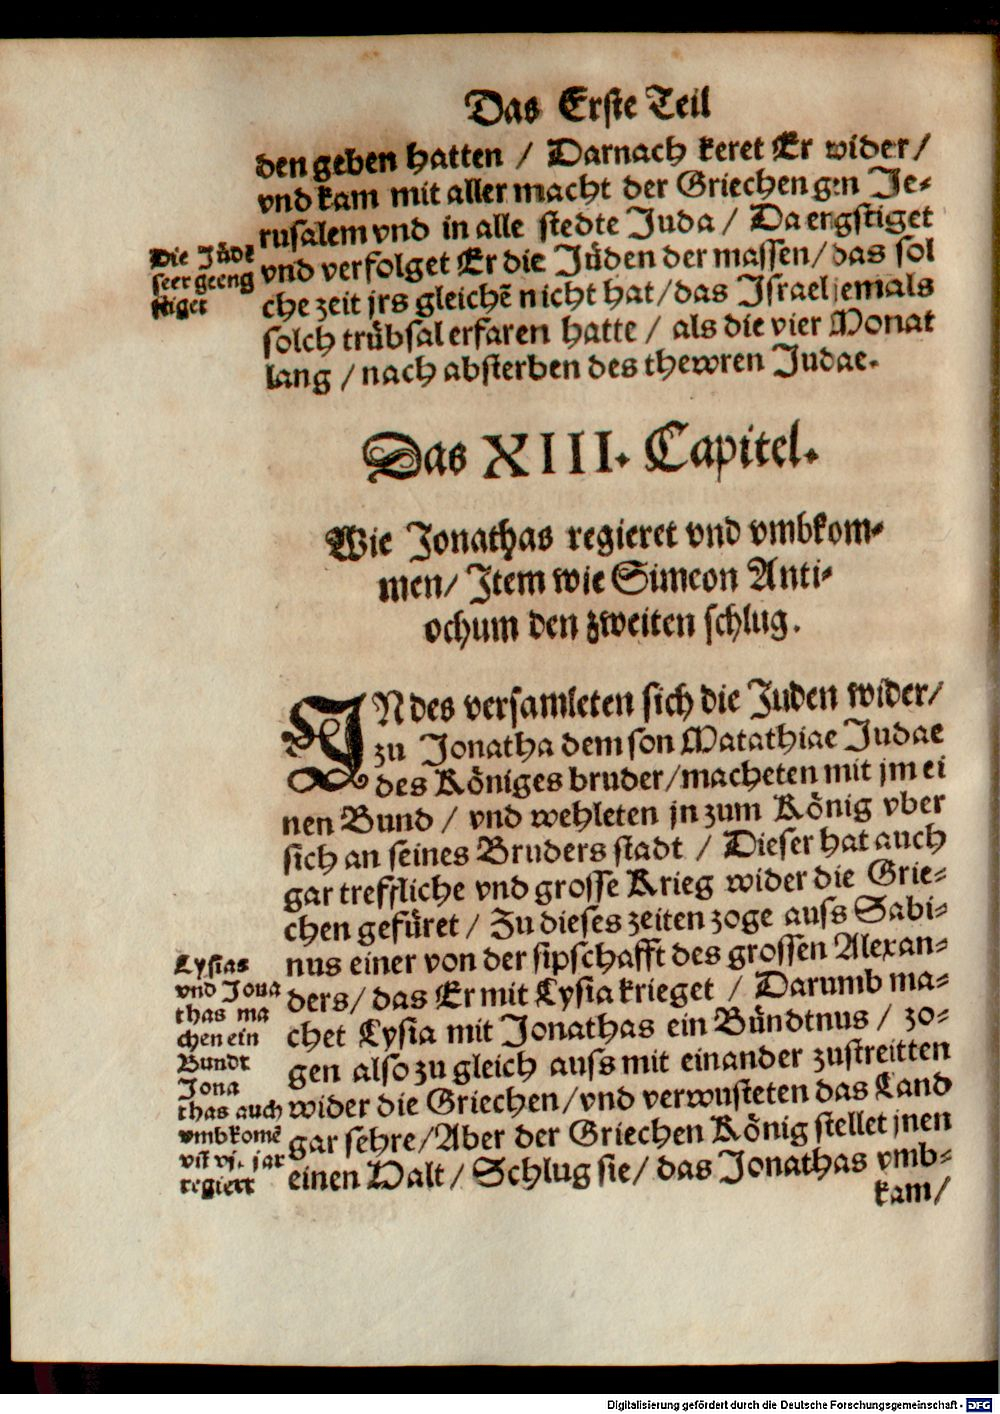 Das Erste Teil
den geben hatten / Darnach keret Er wider /
vnd kam mit aller macht der Griechen gen Je-
rusalem vnd in alle stedte Juda / Da engstiget
vnd verfolget Er die Jüden der massen / das sol
che zeit jrs gleichē nicht hat / das Israel jemals
solch trübsal erfaren hatte / als die vier Monat
lang / nach absterben des thewren Judae.
Die Jüdē
seer geeng
stiget
Das XIII. Capitel.
Wie Jonathas regieret vnd vmbkom-
men / Item wie Simeon Anti-
ochum den zweiten schlug.
INdes versamleten sich die Juden wider /
zu Jonatha dem son Matathiae Judae
des Königes bruder / macheten mit jm ei
nen Bund / vnd wehleten jn zum König vber
sich an seines Bruders stadt / Dieser hat auch
gar treffliche vnd grosse Krieg wider die Grie-
chen gefüret / Zu dieses zeiten zoge auss Sabi-
nus einer von der sipschafft des grossen Alexan-
ders / das Er mit Lysia krieget / Darumb ma-
chet Lysia mit Jonathas ein Bündtnus / zo-
gen also zu gleich auss mit einander zustreitten
wider die Griechen / vnd verwusteten das Land
gar sehre / Aber der Griechen König stellet jnen
einen Halt / Schlug sie / das Jonathas vmb-
kam /
Lysias
vnd Jona
thas ma
chen ein
Bundt
Jona
thas auch
vmbkomē
vñ vj. jar
regiert
Digitalisierung gefördert durch die Deutsche Forschungsgemeinschaft - DFG